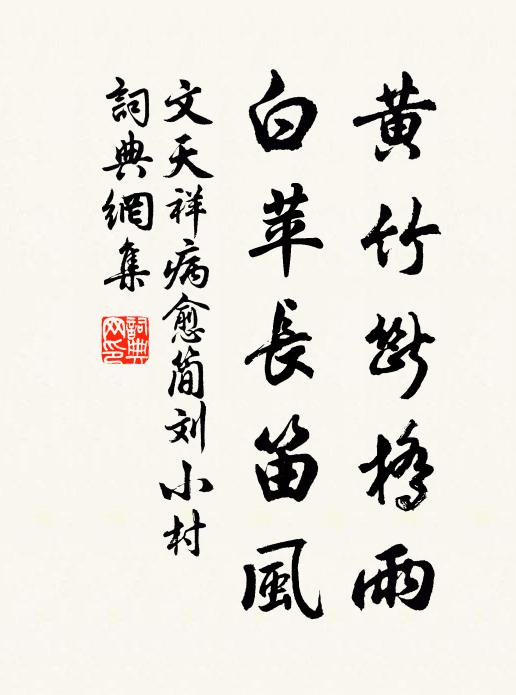 黄竹斷橋雨
白苹長笛風
文天祥病愈简刘小村
詞典網集
詞典网印